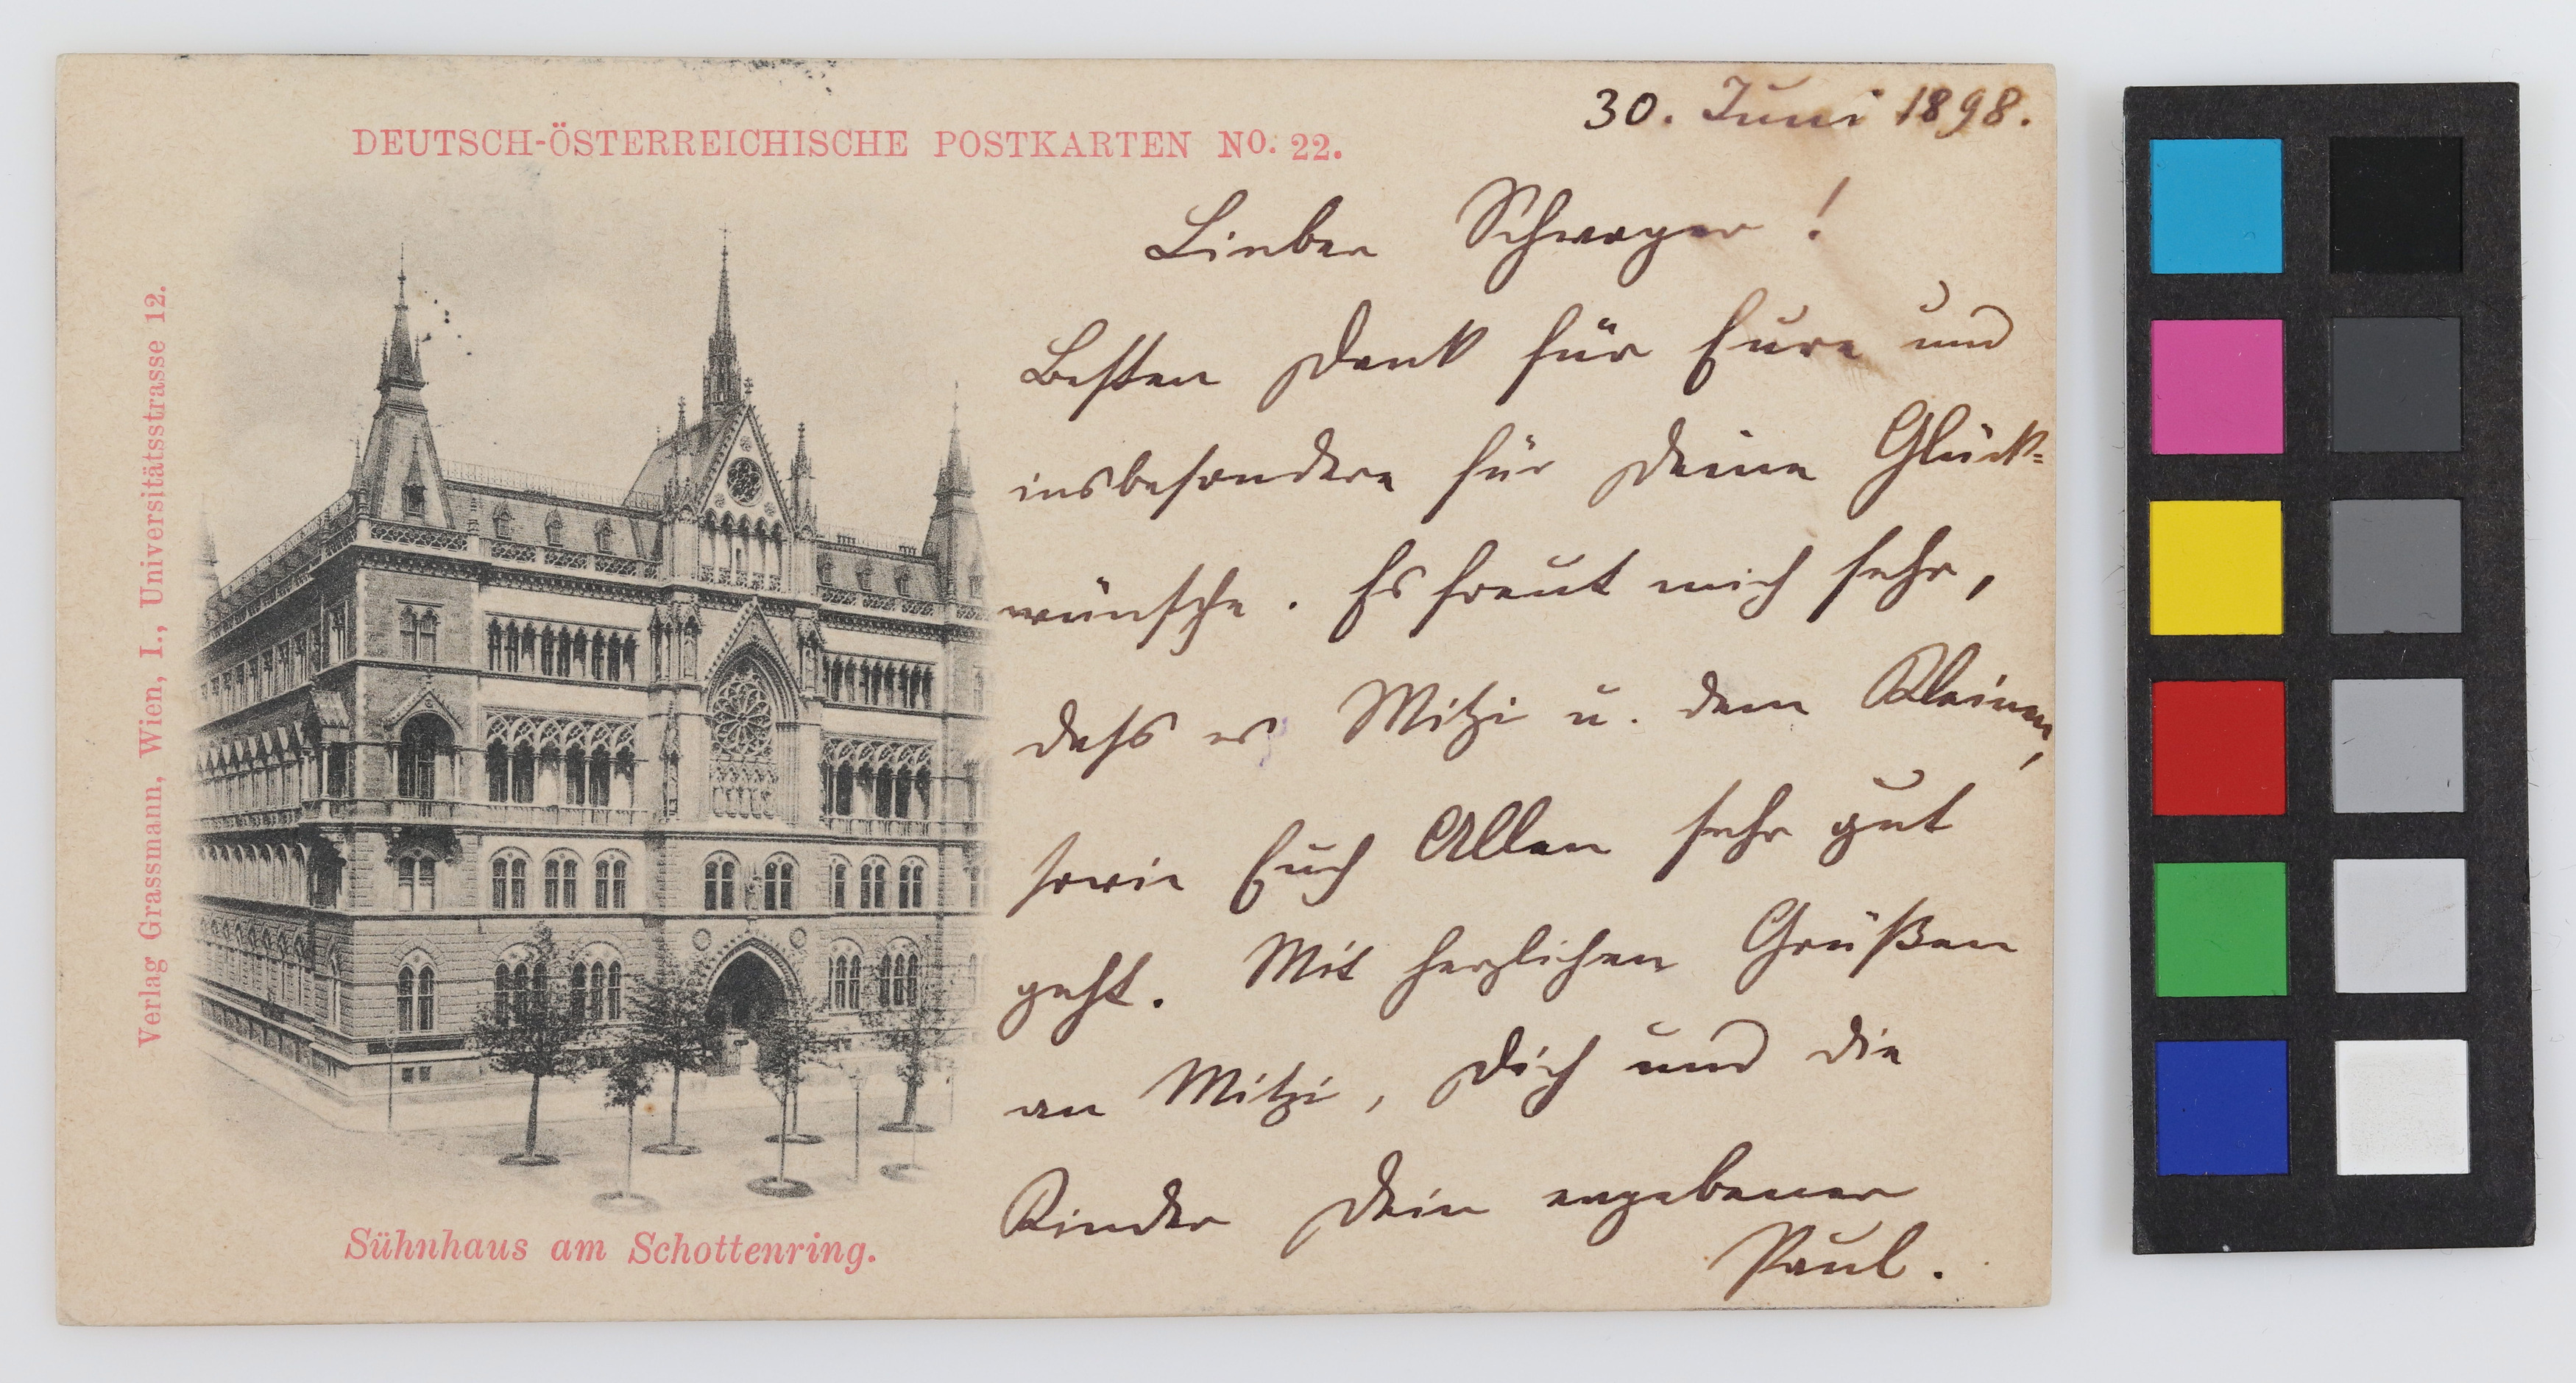 DEUTSCH-ÖSTERREICHISCHE POSTKARTEN No. 22.
Verlag Grassmann, Wien, I., Universitätsstrasse 12.
Sühnhaus am Schottenring.
30. Juni 1898.
Lieber Schwager!
Besten Dank für Eure und
insbesondere für Deine Glück=
wünsche. Es freut mich sehr,
daß es Mitzi u. dem Kleinen,
sowie Euch Allen sehr gut
geht. Mit herzlichen Grüßen
an Mitzi, Dich und die
Kinder Dein ergebener
Paul.